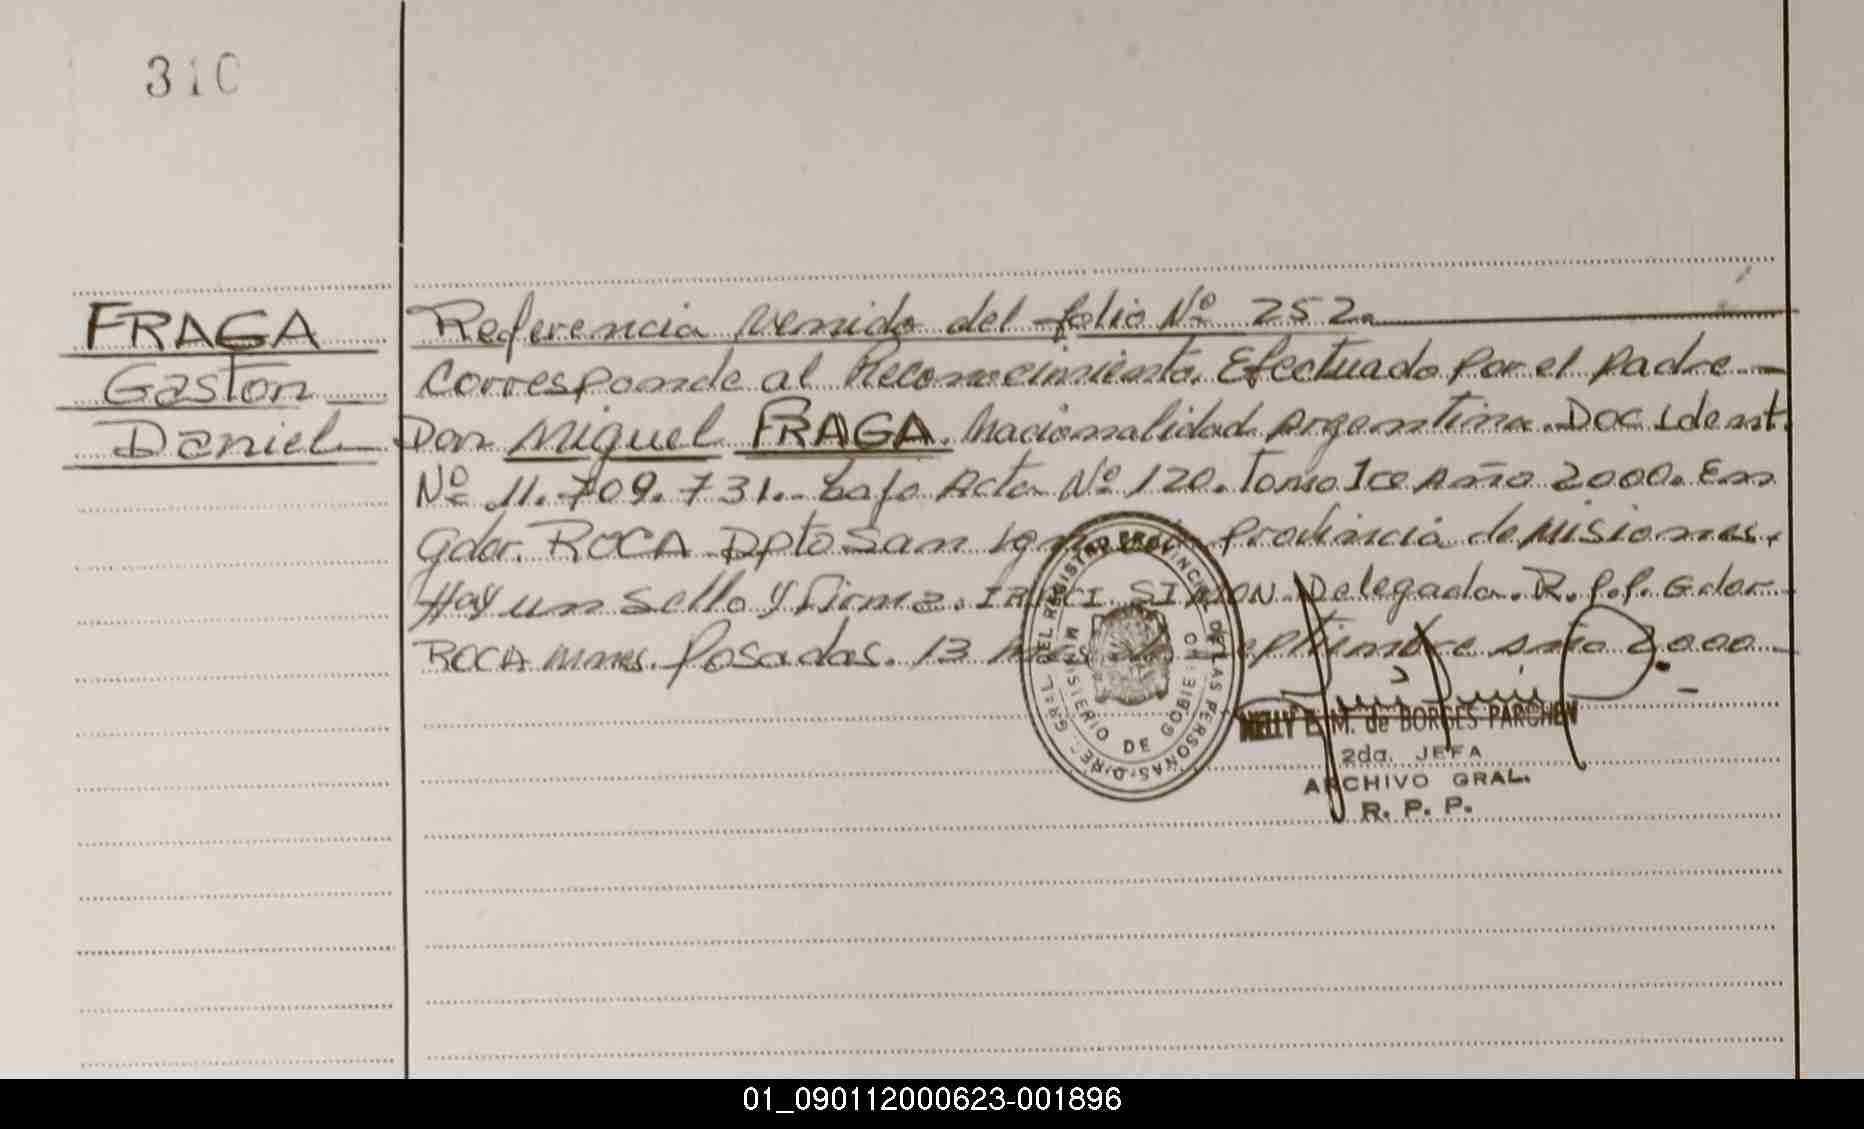 310
FRAGA
Gaston
Daniel
Referencia venida del folio Nº 252.
Corresponde al Reconocimiento. Efectuado Por el padre
Don Miguel FRAGA. Nacionalidad Argentina. Doc Ident.
Nº 11.709.731.- bajo Acta Nº 120. Tomo 1ro Año 2000. En
Gdor. ROCA Dpto San Provincia de Misiones.
Hay un Sello y firma. SIMON. Delegada. R.P.P. Gdor.
ROCA Mnes. Posadas. 13 Septiembre año 2000
DIREC. GRAL. DEL REGISTRO PROVINCIAL DE LAS PERSONAS
MINISTERIO DE GOBIERNO
NELLY E. M. de BORGES PARCHEN
2da. JEFA
ARCHIVO GRAL.
R. P. P.
01_090112000623-001896